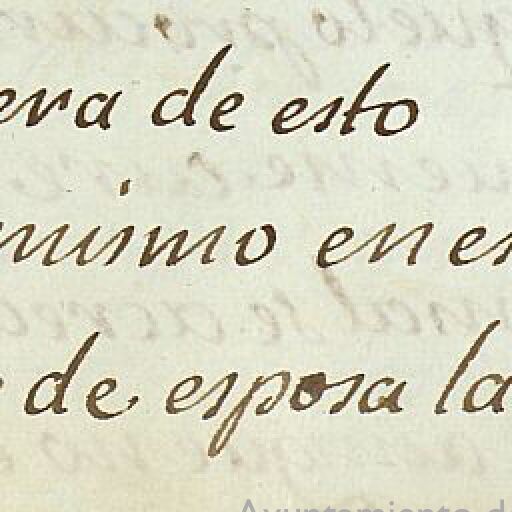 era de esto
mismo en es
de esposa la
Ayuntamiento de